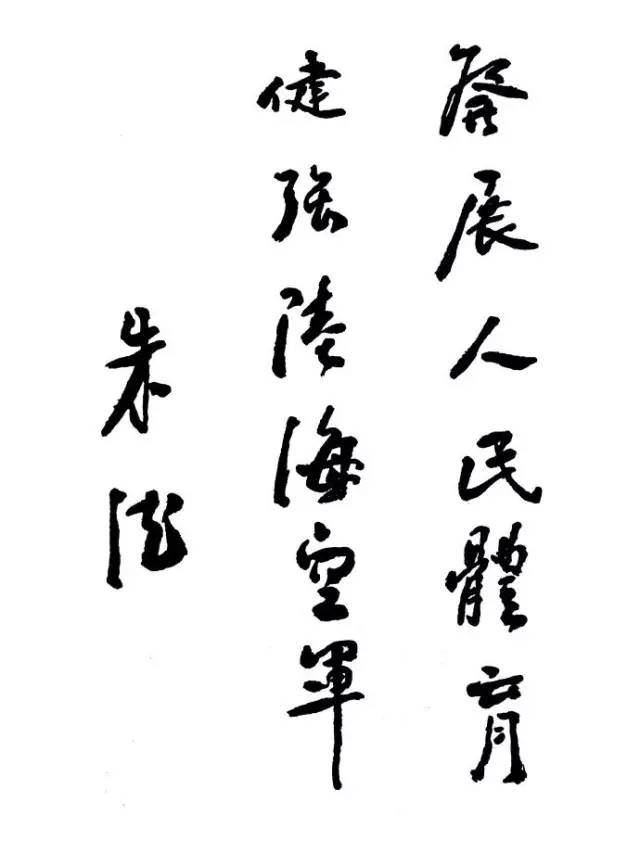 發展人民體育
健強陸海空軍
朱德